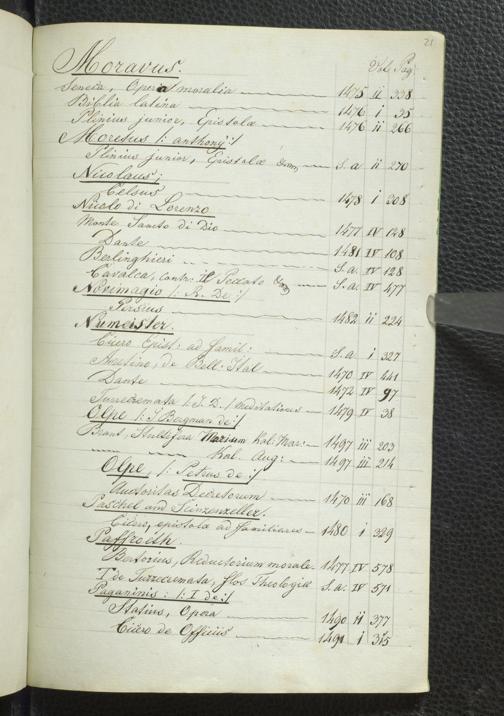 21
Moravus. Vol. Pag.
Seneca, Opera moralia 1475 ii 338
Biblia latina 1476 i 35
Plinius junior, Epistolæ 1476 ii 266
Moretus /: anthony :/
Plinius junior, Epistolæ s. a. ii 270
Nicolaus;
Celsus 1478 i 208
Nicolo di Lorenzo
Monte Sancto di Dio 1477 IV 128
Dante 1481 IV 108
Berlinghieri S. a. IV 128
Cavalca, contr: il Peccato S. a. IV 477
Novimagio /: R. De :/
Persius 1482 ii 224
Numeister.
Cicero Epist: ad famil: S. a. i 327
Aretino, de Bell: Ital 1470 IV 441
Dante 1472 IV 97
Turrecremata /: I. D. / Meditationes 1479 IV 38
Olpe /: I Bergman de :/
Brant, Stultifera Navium Kal: Mar: 1497 iii 203
Kal. Aug: 1497 iii 214
Olpe, /: Petrus de :/
Auctoritas Decretorum 1470 iii 168
Paschel and Scinzenzeller.
Cicero, epistolæ ad familiares 1480 i 329
Paffroeth
Bertorius, Reductorium morale 1477 IV 578
I de Turrecremata, flos Theologiæ S. a. IV 571
Paganinis: /: I de :/
Statius, Opera 1490 ii 377
Cicero de Officiis 1491 i 315